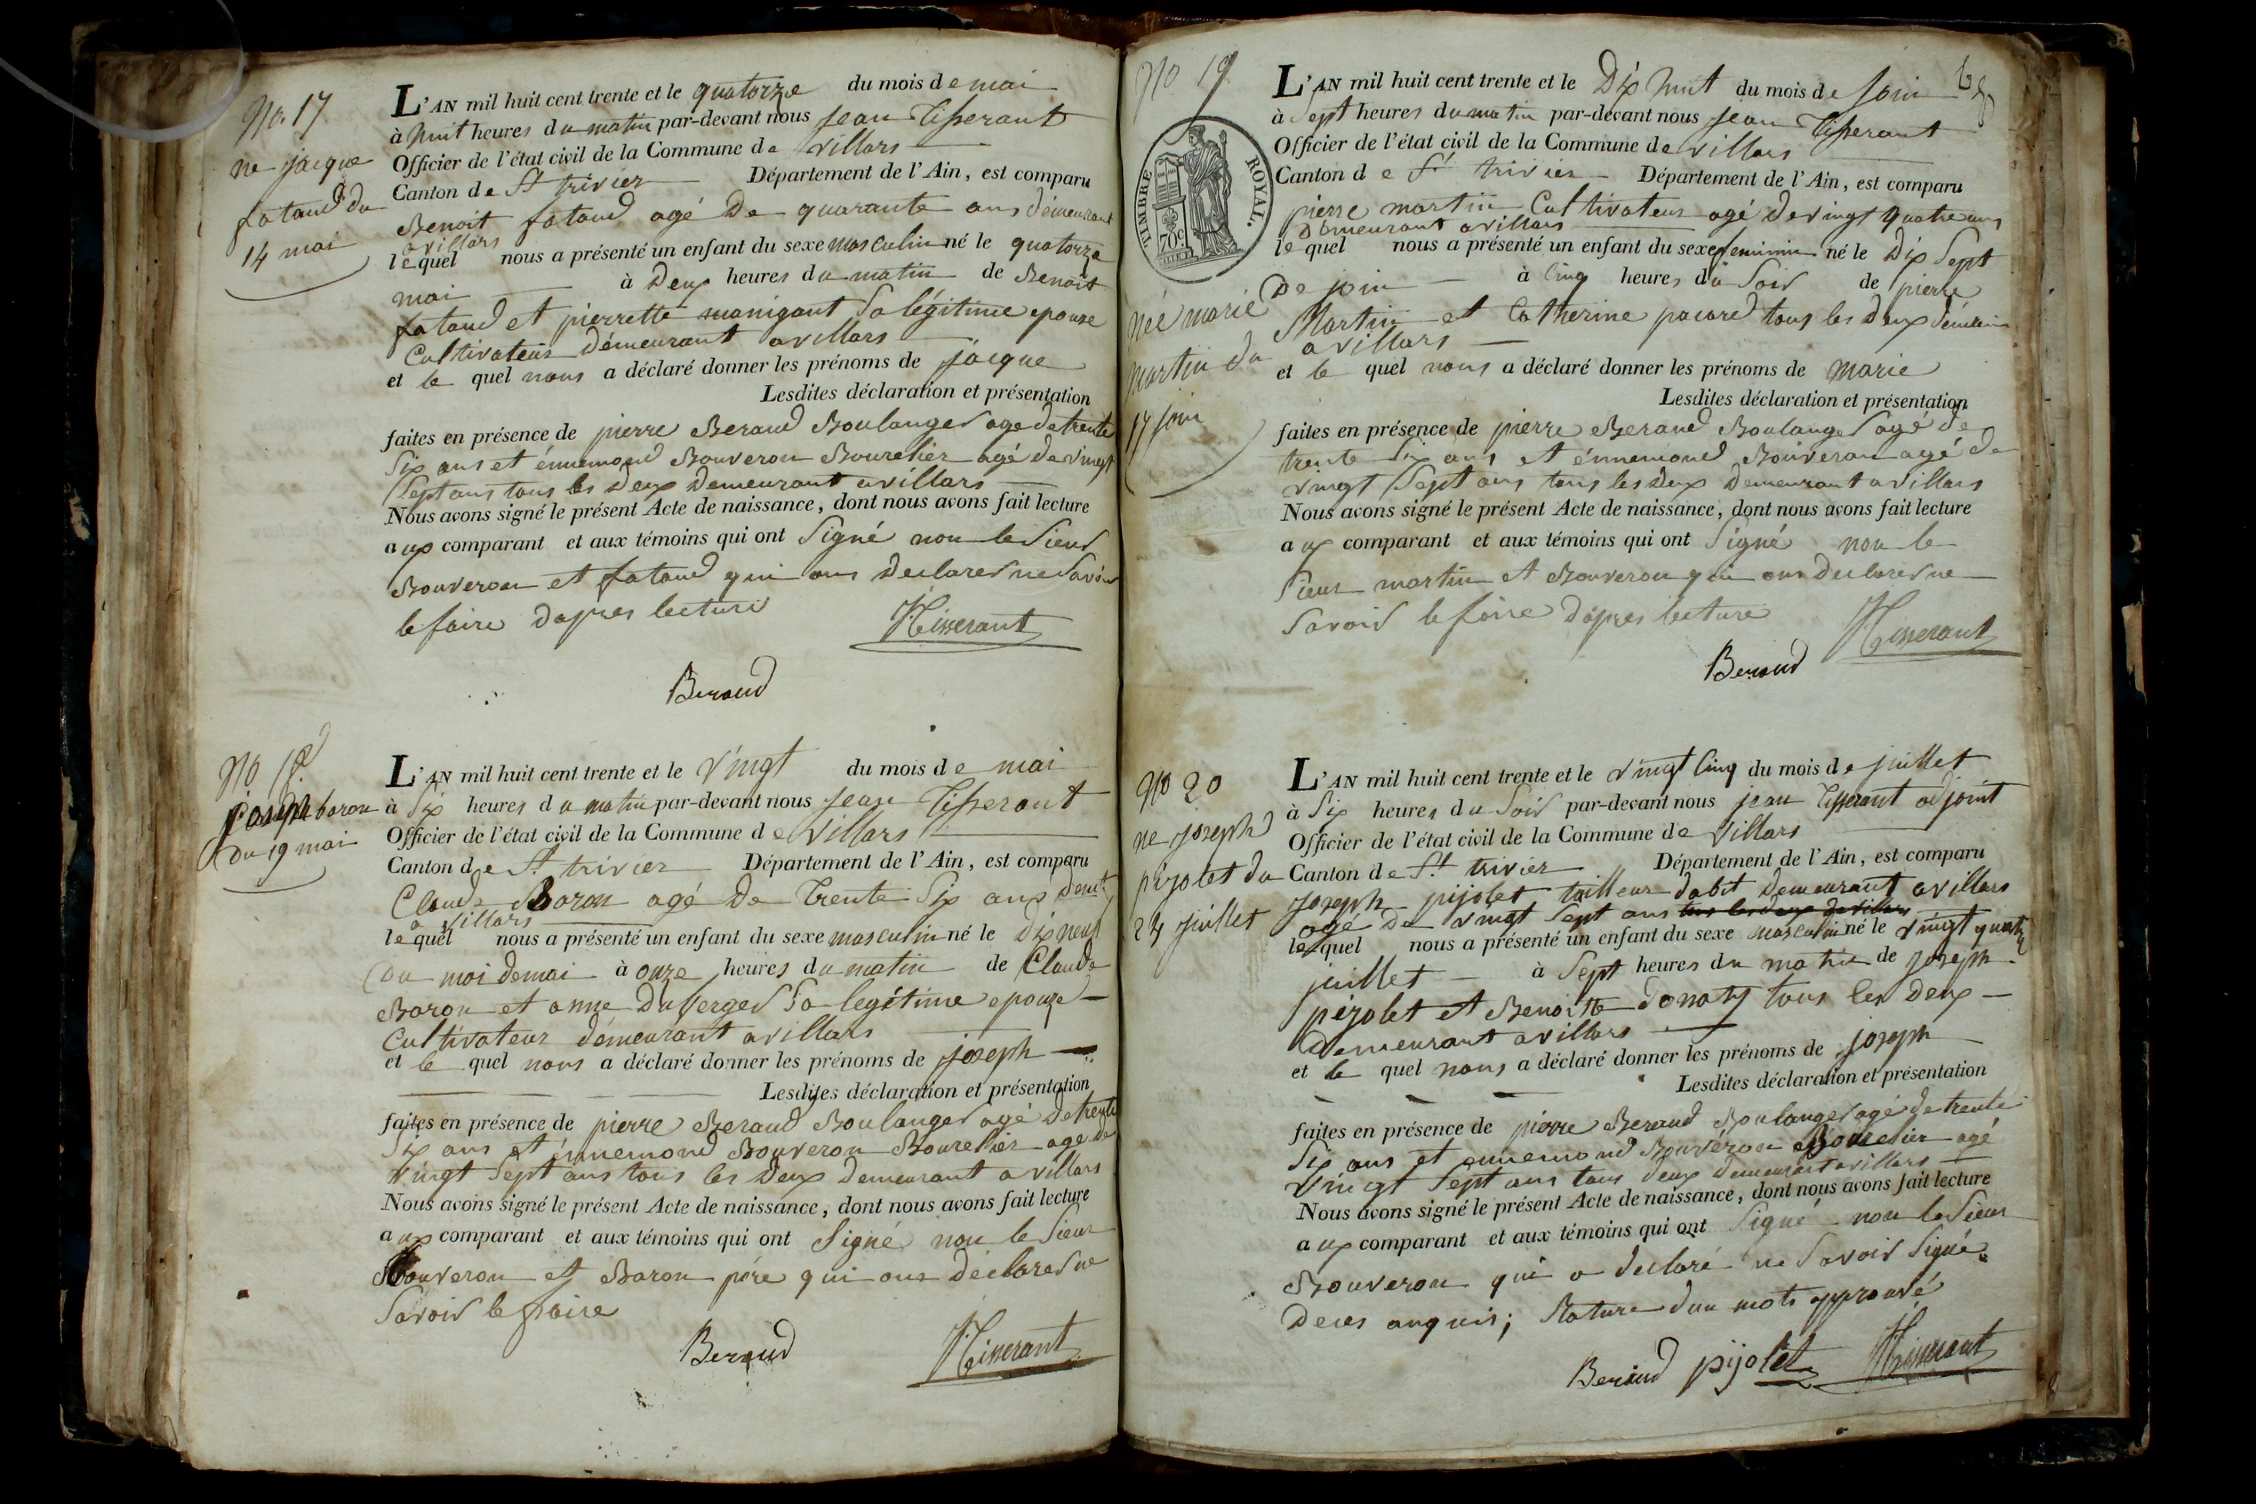 No. 17
ne jacque
fataud du
14 mai
L'AN mil huit cent trente et le quatorze du mois de mai
à huit heures du matin par-devant nous jean Tisserant
Officier de l'état civil de la Commune de villars
Canton de St trivier Département de l'Ain, est comparu
Benoit fataud agé De quarante ans demeurant
a villars
lequel nous a présenté un enfant du sexe masculin né le quatorze
mai à Deux heures du matin de Benoit
fataud et pierrette manigant Sa légitime epouse
Cultivateur démeurant avillars
et le quel nous a déclaré donner les prénoms de jacque
Lesdites déclaration et présentation
faites en présence de pierre Beraud Boulanger age de trente
Six ans et énnemond Bouveron Bourelier agé de vingt
Sept ans tous les Deux Demeurant avillars
Nous avons signé le présent Acte de naissance, dont nous avons fait lecture
aux comparant et aux témoins qui ont Signé non le Sieur
Bouveron et fataud qui ons Declarer ne Savoir
le faire Dapres lecture
JTisserant
Beraud
No 18
joseph baron
du 19 mai
L'AN mil huit cent trente et le vingt du mois de mai
à Six heures du matin par-devant nous jean Tisserant
Officier de l'état civil de la Commune de villars
Canton de St trivier Département de l'Ain, est comparu
Claude Baron agé De Trente Six ans demt
a villars
lequel nous a présenté un enfant du sexe masculin né le Dix neuf
Du moi demai à onze heures du matin de Claude
Baron et anne Duverger Sa legétime epouze
Cultivateur démeurant avillars
et le quel nous a déclaré donner les prénoms de joseph
Lesdites déclaration et présentation
faites en présence de pierre Beraud Boulanger agé de trente
Six ans et énnemond Bouveron Bourelier age de
vingt Sept ans tous les Deux Demeurant avillars
Nous avons signé le présent Acte de naissance, dont nous avons fait lecture
aux comparant et aux témoins qui ont Signé non le Sieur
Bouveron et Baron pére qui ons déclarer ne
Savoir le faire
Beraud JTisserant
No 19
TIMBRE ROYAL.
70c
née marie
martin du
17 join
L'AN mil huit cent trente et le Dix huit du mois de Join
à Sept heures du matin par-devant nous jean Tisserant
Officier de l'état civil de la Commune de villars
Canton de St trivier Département de l'Ain, est comparu
pierre martin Cultivateur agé de vingt quatre ans
Démeurant avillars
lequel nous a présenté un enfant du sexe feminin né le Dix Sept
De join à Cinq heures du Soir de pierre
Martin et Catherine pacard tous les deux
avillars
et le quel nous a déclaré donner les prénoms de marie
Lesdites déclaration et présentation
faites en présence de pierre Beraud Boulanger agé de
trente Six ans et énnemond Bouveron agé de
vingt Sept ans tous les Deux Demeurant avillars
Nous avons signé le présent Acte de naissance, dont nous avons fait lecture
aux comparant et aux témoins qui ont Signé non le
Sieur martin et Bouveron qui ons declarer ne
Savoir le faire Dápres lecture
JTisserant
Beraud
No 20
ne joseph
pijolet du
24 juillet
L'AN mil huit cent trente et le vingt Cinq du mois de juillet
à Six heures du Soir par-devant nous jean Tisserant adjoint
Officier de l'état civil de la Commune de villars
Canton de St trivier Département de l'Ain, est comparu
joseph pijolet tailleur dabit Demeurant avillars
agé De vingt Sept ans tous les deux de villars
lequel nous a présenté un enfant du sexe masculin né le vingt quatre
juillet à Sept heures du matin de joseph
pijolet et Benoitte Donat tous les Deux
Demeurant avillars
et le quel nous a déclaré donner les prénoms de joseph
Lesdites déclaration et présentation
faites en présence de pierre Beraud Boulanger agé de trente
Six ans et ennemond Bouveron Bourelier agé
vingt Sept ans tous deux demeurant avillars
Nous avons signé le présent Acte de naissance, dont nous avons fait lecture
aux comparant et aux témoins qui ont Signé non le Sieur
Bouveron qui a declaré ne Savoir Signé
Rature dun mots approuvé
Beraud pijolet JTisserant